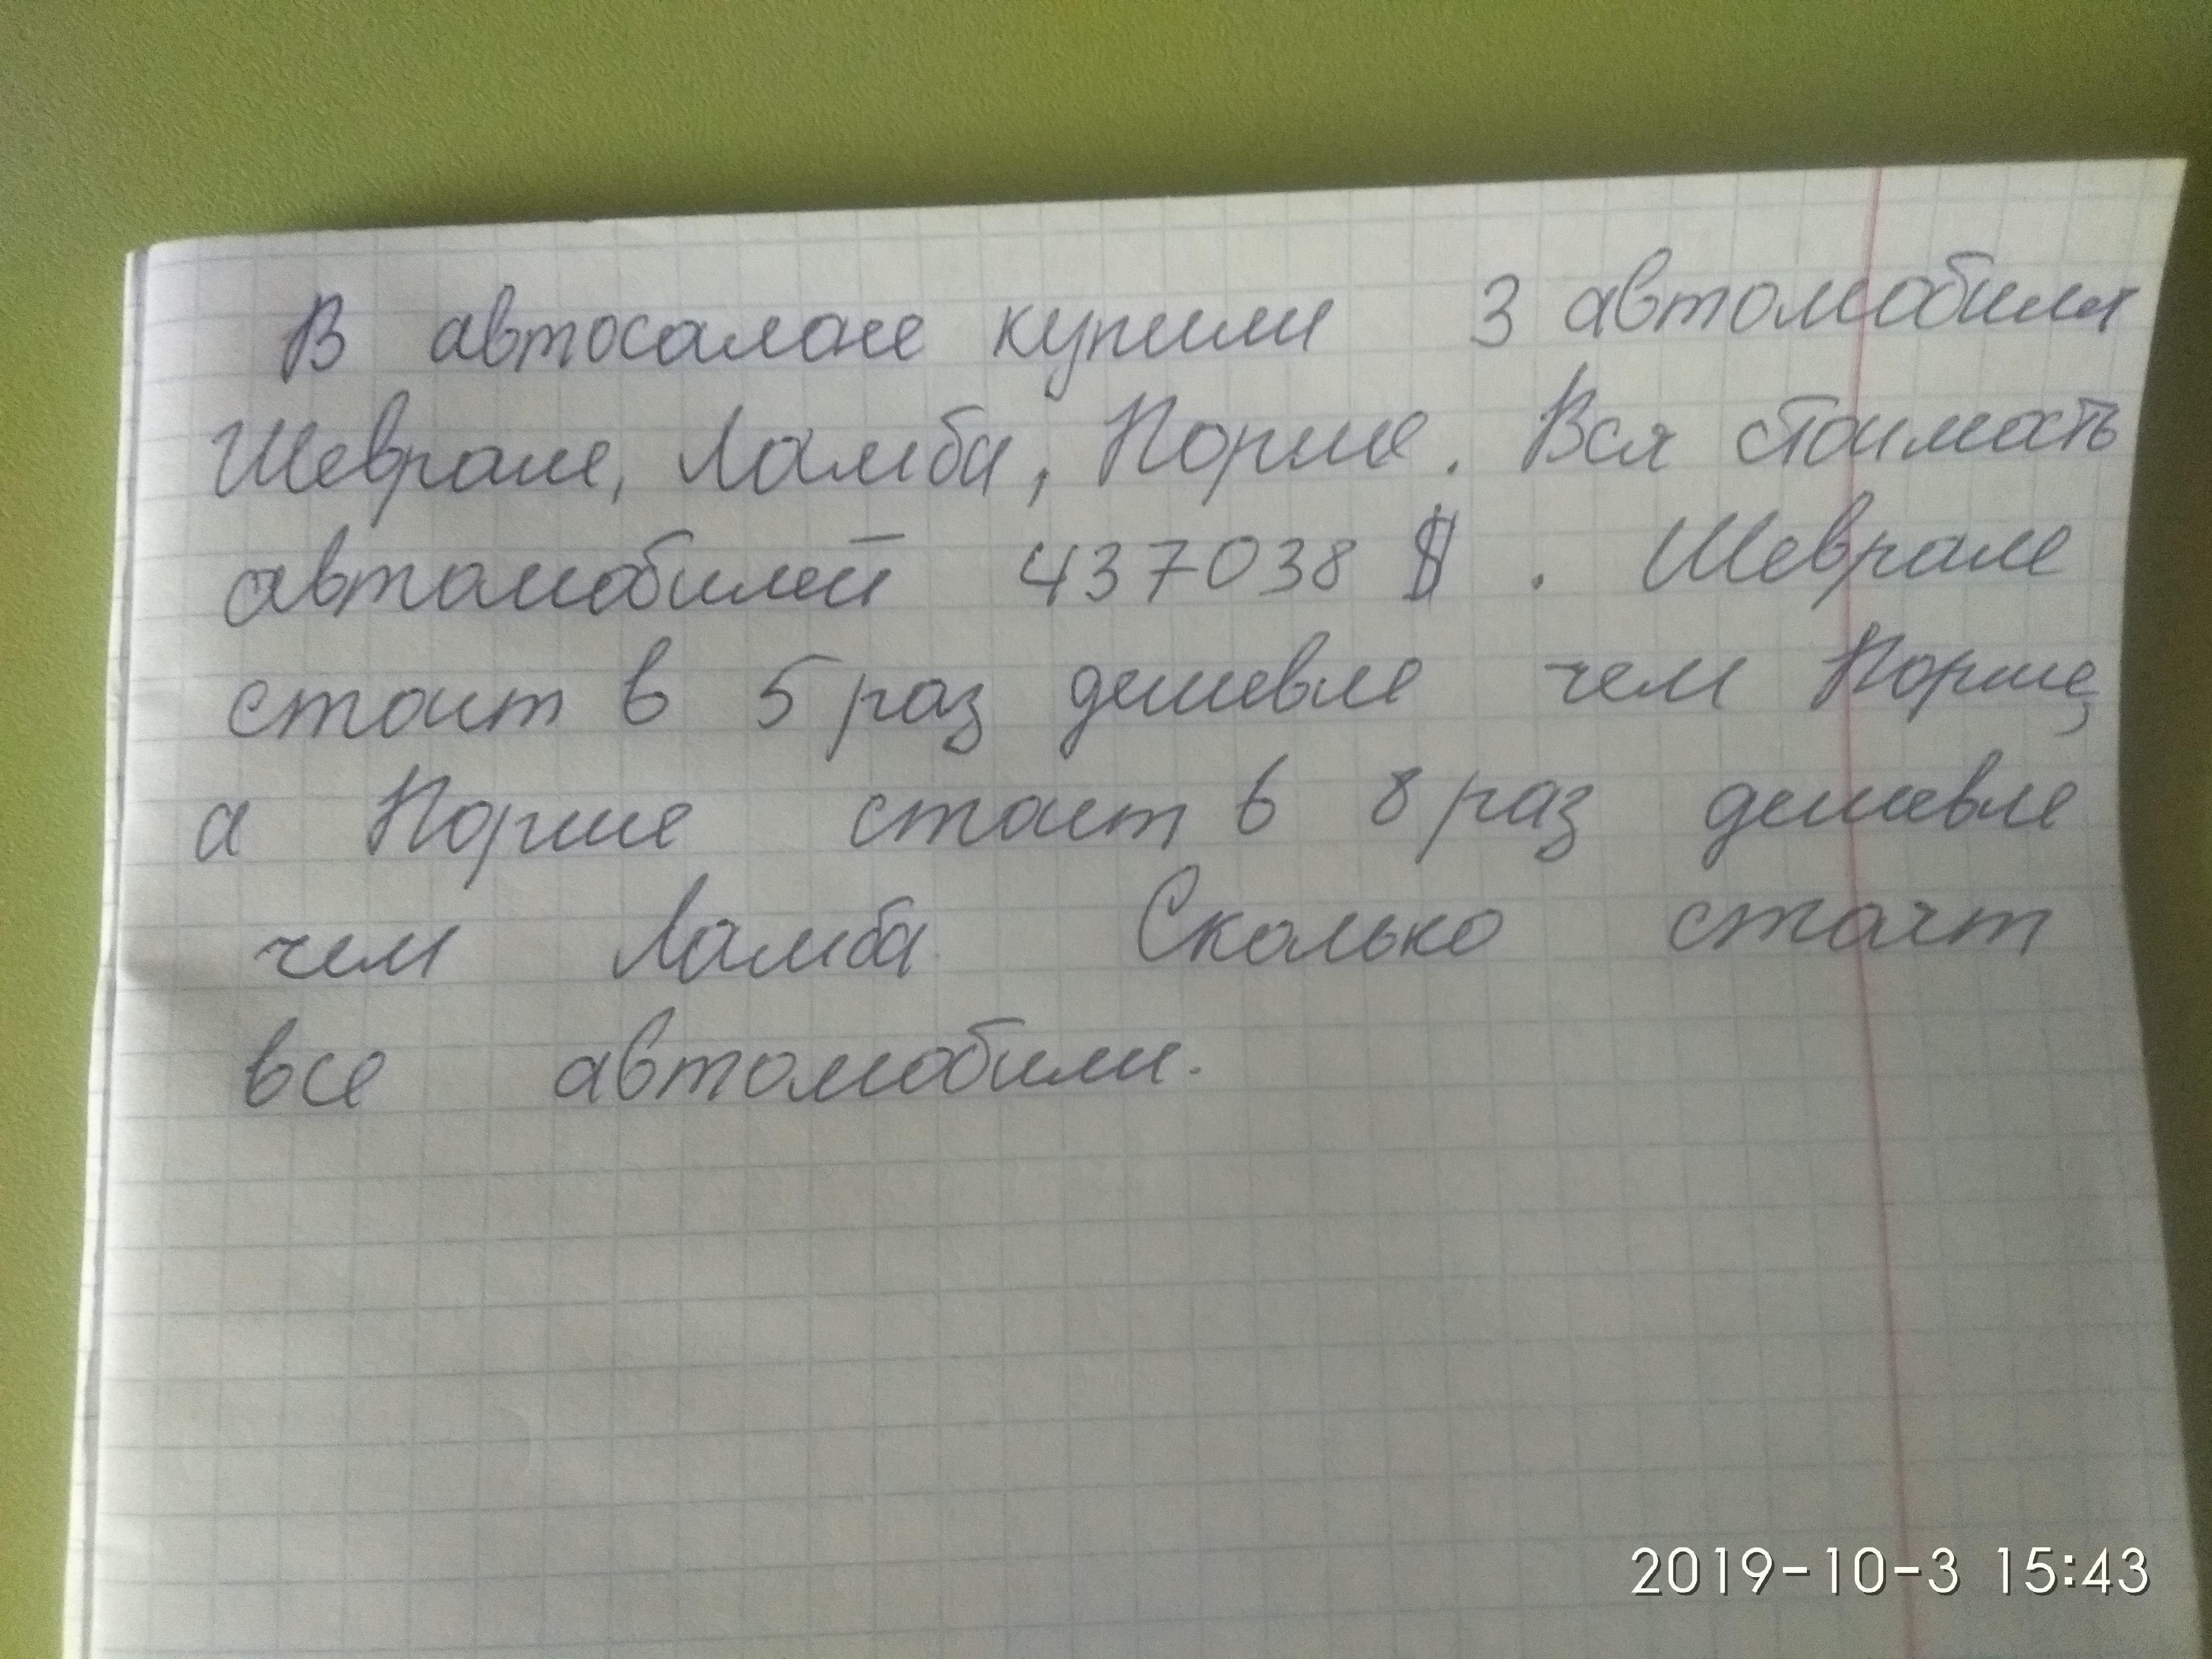 В автосалоне купили 3 автомобиля
Шевроле, Ламба, Порше. Вся стоимость
автомобилей 437038 $. Шевроле
стоит в 5 раз дешевле чем Порше,
а Порше стоит в 8 раз дешевле
чем Ламба. Сколько стоят
все автомобили.
2019-10-3 15:43